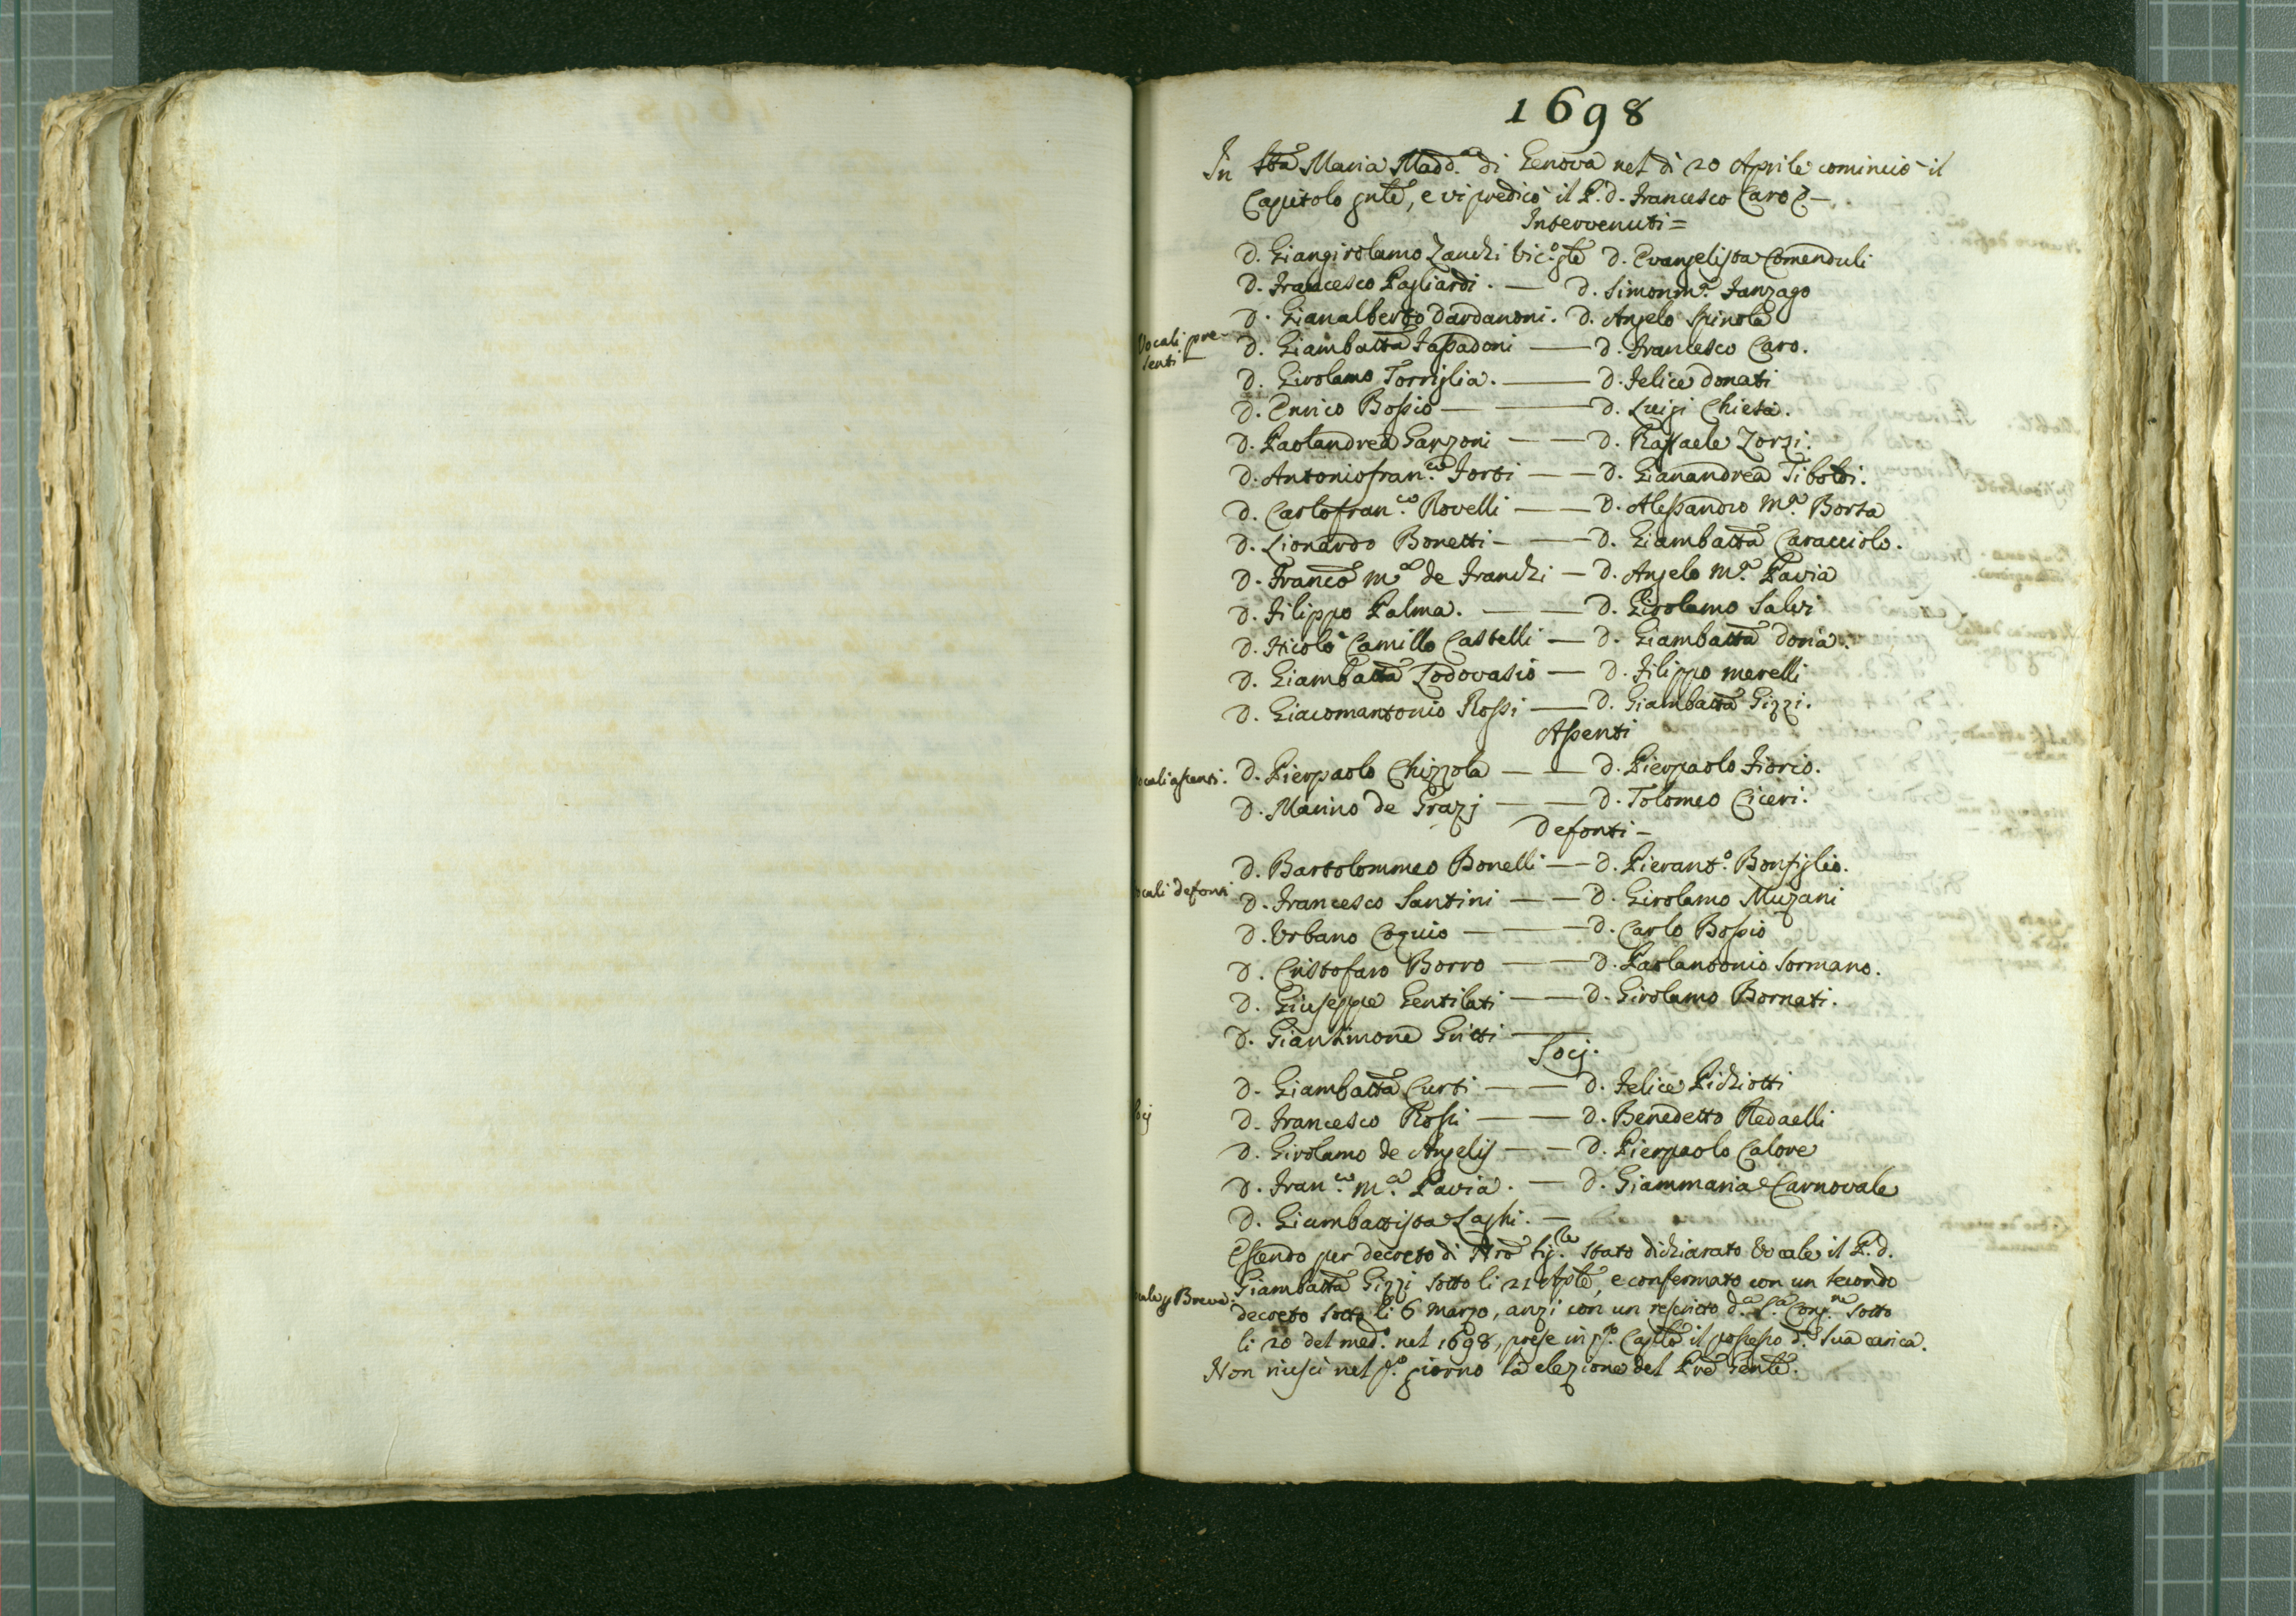 1698
In Sta Maria Madd.na di Genova nel dì 20 Aprile cominciò il
Capitolo gnle, e vi predicò il P. d. Francesco Caro
Intervenuti =
D. Giangirolamo Zanchi Vic.o gle D. Evangelista Comenduli
D. Francesco Pagliardi. — D. Simonm.a Fanzago
D. Gianalberto Dardanoni. D. Angelo Spinola
Vocali pre-
senti
D. Giambatta Fassadoni — D. Francesco Caro.
D. Girolamo Torriglia. — D. Felice Donati
D. Enrico Bossio — — D. Luigi Chiesa.
D. Paolandrea Garzoni — — D. Raffaele Zorzi.
D. Antoniofran.co Forti — — D. Gianandrea Tiboldi.
D. Carlofran.co Rovelli — — D. Alessandro M.a Borsa
D. Lionardo Bonetti — — D. Giambatta Caracciolo.
D. Franco m.a de Franchi — D. Angelo M.a Pavia
D. Filippo Palma. — — D. Girolamo Salvi
D. Nicolò Camillo Castelli — D. Giambatta Doria.
D. Giambatta Lodovasio — D. Filippo Merelli
D. Giacomantonio Rossi — D. Giambatta Gizzi.
Assenti
ocali assenti. D. Pierpaolo Chizzola — — D. Pierpaolo Fiorio.
D. Marino de Grazj — — D. Tolomeo Ciceri.
Defonti —
D. Bartolommeo Bonelli — — D. Pierant.o Bonfiglio.
cali defonti D. Francesco Santini — — D. Girolamo Muzani
D. Urbano Coquio — — D. Carlo Bossio
D. Cristofaro Borro — — D. Paolantonio Sormano.
D. Giuseppe Gentilati — — D. Girolamo Bornati.
D. Giansimone Gritti —
Socj.
D. Giambatta Curti — — D. Felice Pichiotti
ocj D. Francesco Rossi — — D. Benedetto Redaelli
D. Girolamo de Angelis — — D. Pierpaolo Calore
D. Fran.co m.a Pavia. — D. Giammaria Carnovale
D. Giambattista Laghi. —
Essendo per decreto di Nro Sig.re stato dichiarato Vocale il P. d.
Giambatta Gizzi sotto li 21 Aple, e confermato con un secondo
cale p Breve. decreto sotto li 6 Marzo, anzi con un rescritto d.a S.a Cong.ne sotto
li 20 del med.o nel 1698, prese in q.o Caplo il possesso d. sua carica.
Non riuscì nel p.o giorno la elezione del Pre Genle.